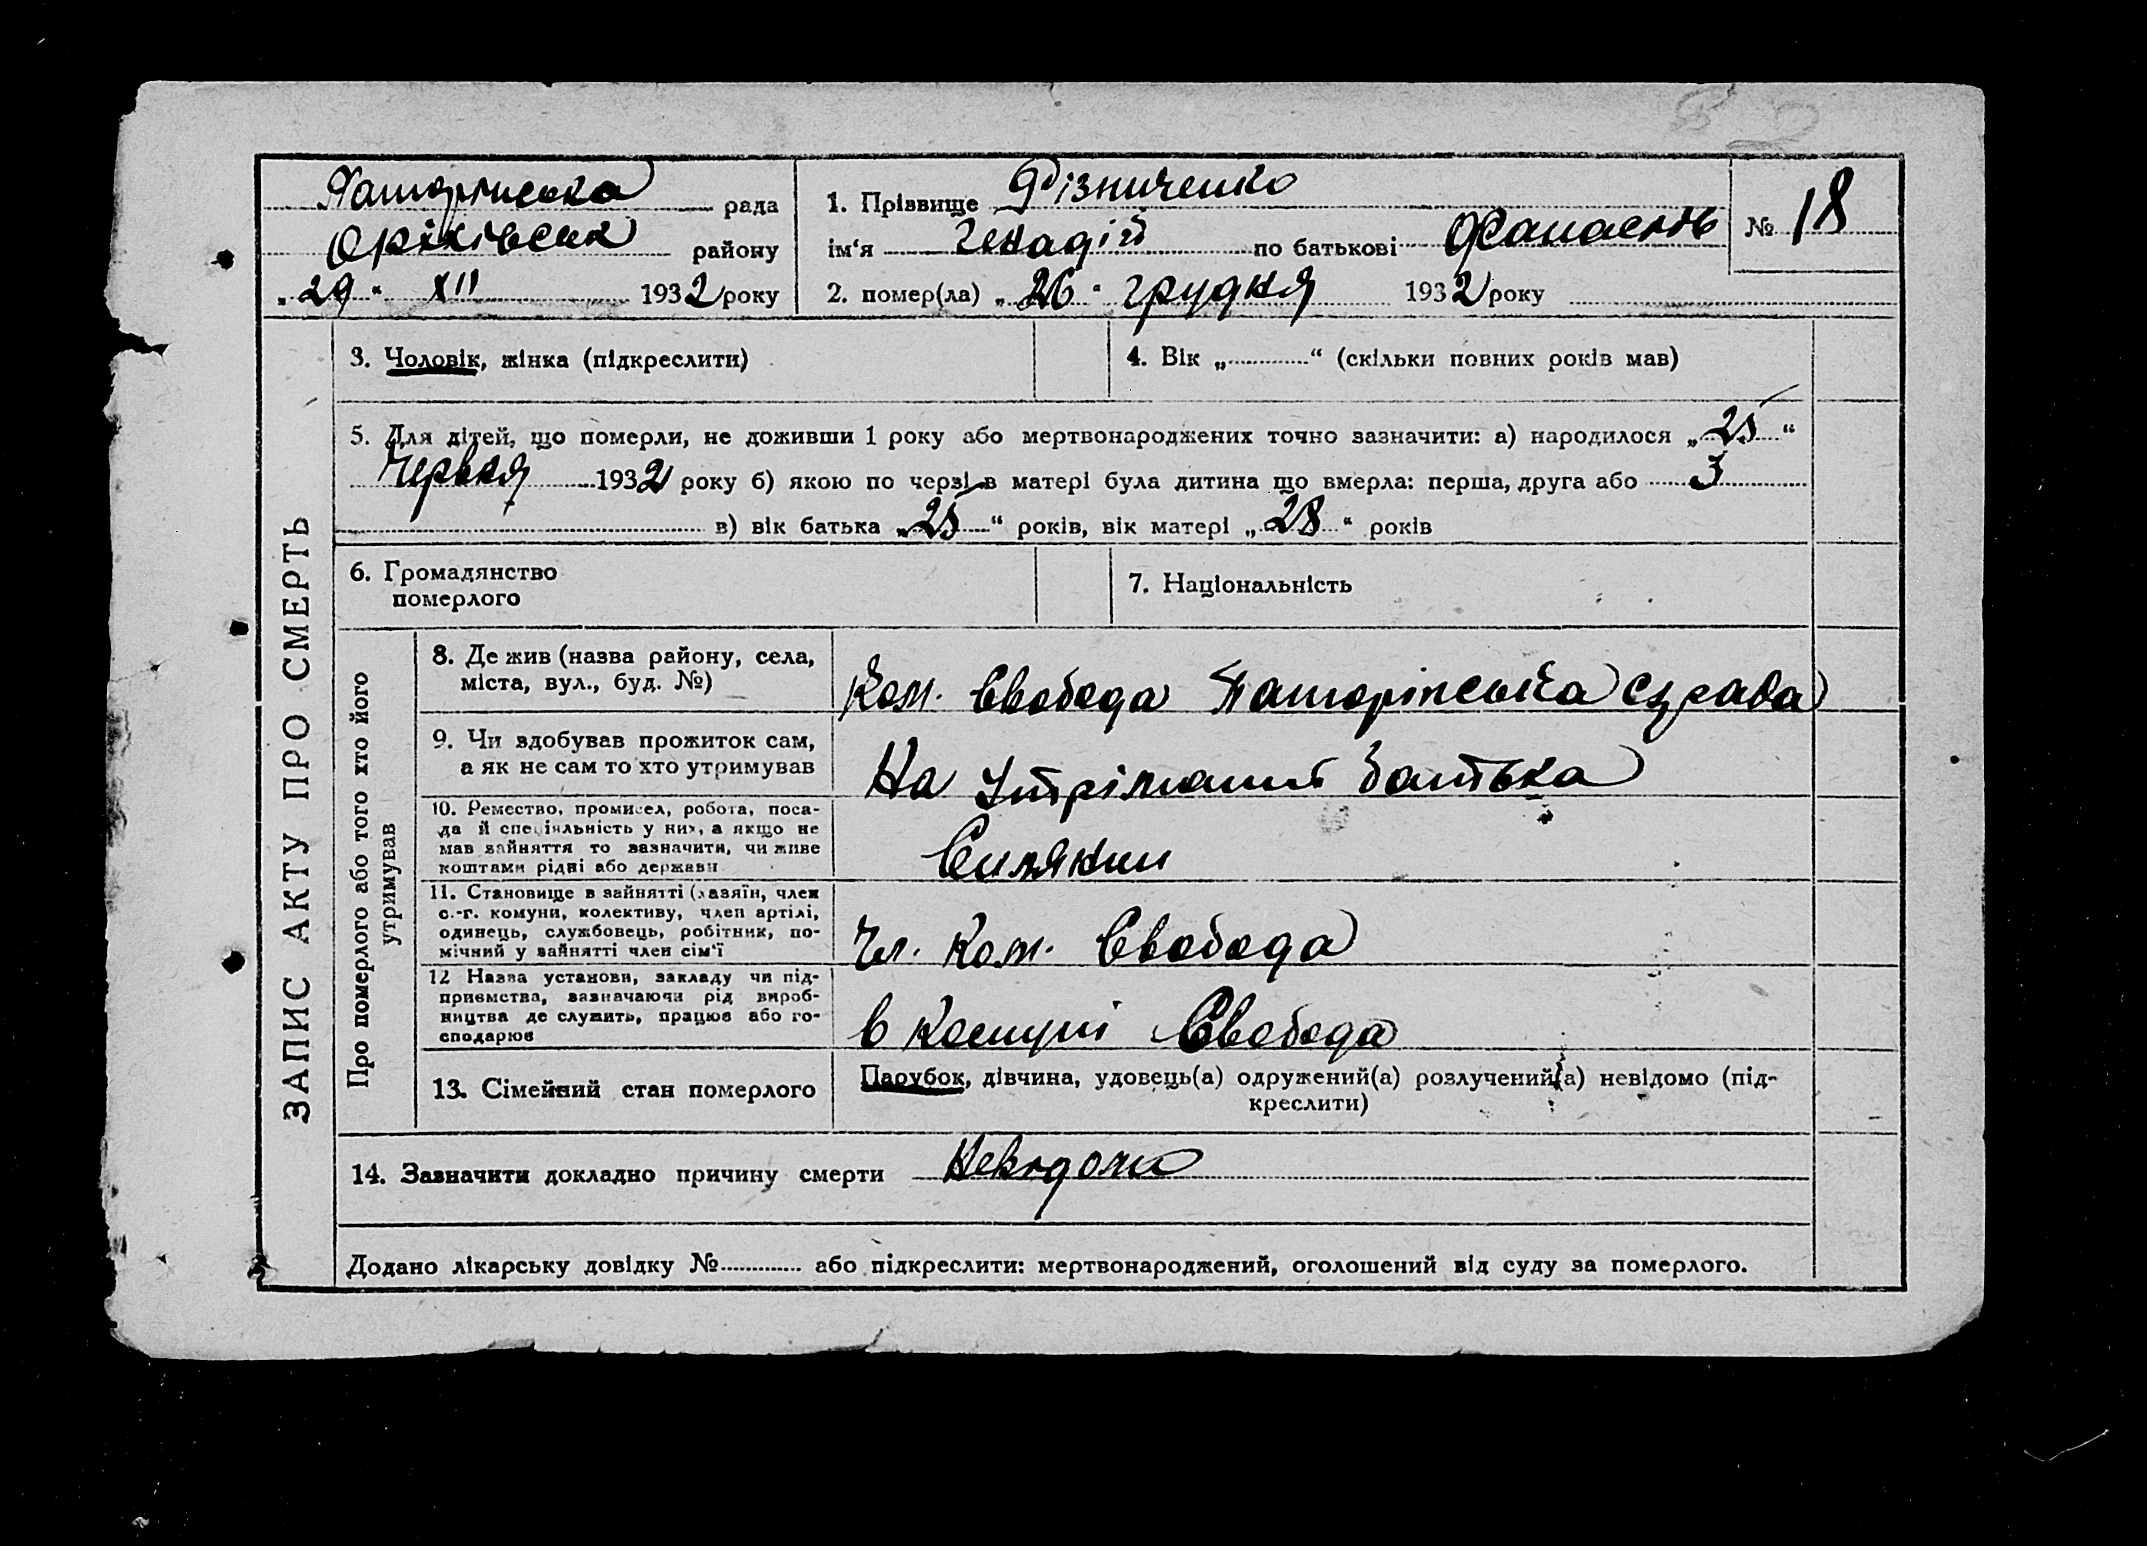 рада
Оріхівськ району
„29“ XII 1932 року
1. Прізвище Різниченко
ім‘я Генадій по батькові
№ 18
2. помер(ла) „26“ грудня 1932 року
ЗАПИС АКТУ ПРО СМЕРТЬ
3. Чоловік, жінка (підкреслити)
4. Вік „............“ (скільки повних років мав)
5. Для дітей, що померли, не доживши 1 року або мертвонароджених точно зазначити: а) народилося „25“
Червня 1932 року б) якою по черзі в матері була дитина що вмерла: перша, друга або 3
в) вік батька „25“ років, вік матері „28“ років
6. Громадянство
померлого
7. Національність
Про померлого або того хто його
утримував
8. Де жив (назва району, села,
міста, вул., буд. №)
Ком. Свобода с/рада
9. Чи здобував прожиток сам,
а як не сам то хто утримував
На утрімании батька
10. Ремество, промисел, робота, поса-
да й спеціяльність у них, а якщо не
мав зайняття то зазначити, чи живе
коштами рідні або держави
11. Становище в зайнятті (хазяїн, член
с.-г. комуни, колективу, член артілі,
одинець, службовець, робітник, по-
мічний у зайнятті член сім‘ї
Чл. Ком. Свобода
12 Назва установи, закладу чи під-
приємства, зазначаючи рід вироб-
ництва де служить, працює або го-
сподарює
в Комуні Свобода
13. Сімейний стан померлого
Парубок, дівчина, удовець(а) одружений(а) розлучений(а) невідомо (під-
креслити)
14. Зазначити докладно причину смерти Невідомо
Додано лікарську довідку №............ або підкреслити: мертвонароджений, оголошений від суду за померлого.